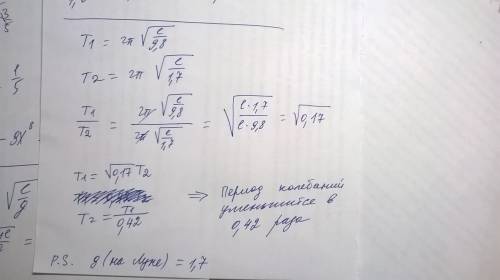 T1 = 2π √(l/9,8)
T2 = 2π √(l/1,7)
T1/T2 = 2π √(l/9,8) / 2π √(l/1,7) = √(l·1,7/l·9,8) = √0,17
T1 = √0,17 T2
T2 = T1/0,42 ⇒ Период колебаний
уменьшится в
0,42 раза
P.S. g (на Луне) = 1,7